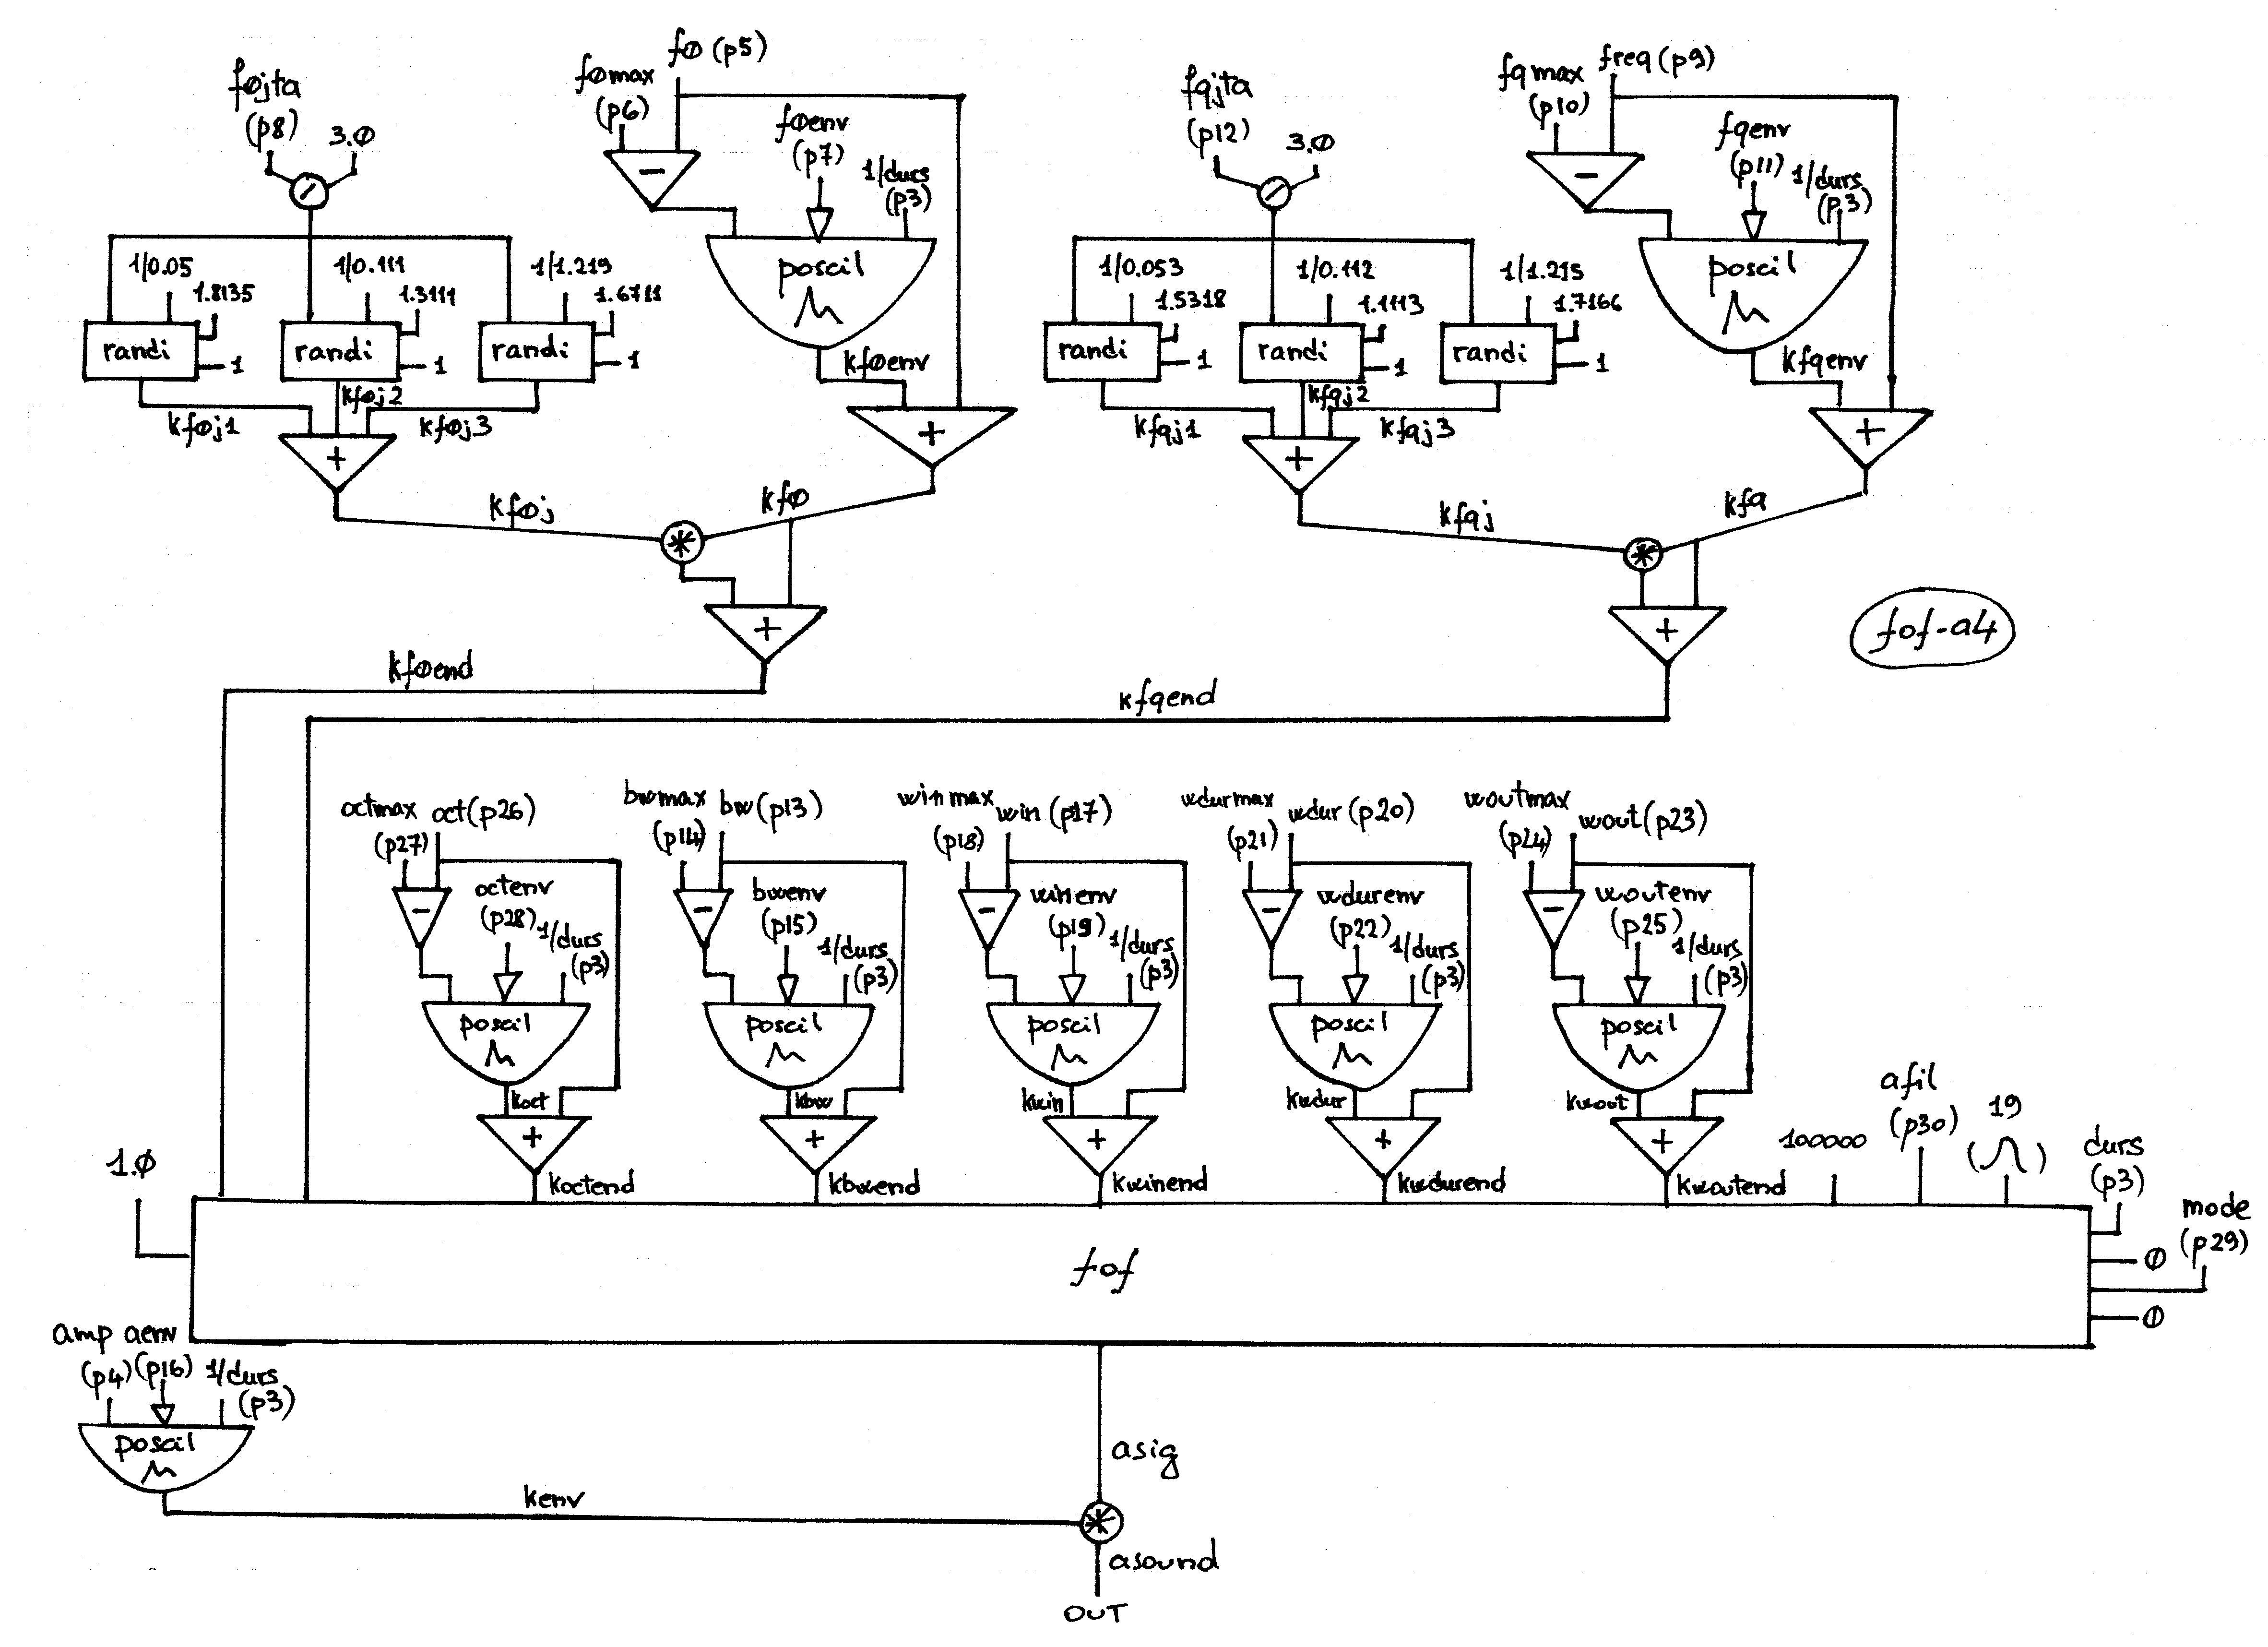 føjta
(p8)
3.ø
1/0.05
1.8135
randi
1
1/0.111
1.3111
randi
1
1/1.219
1.6711
randi
1
kføj1
kføj2
kføj3
+
kføj
fømax
(p6)
fø (p5)
-
føenv
(p7)
1/durs
(p3)
poscil
kføenv
+
kfø
*
+
køend
fqjta
(p12)
3.ø
1/0.053
1.5318
randi
1
1/0.112
1.1113
randi
1
1/1.215
1.7166
randi
1
kfqj1
kfqj2
kfqj3
+
kfqj
fqmax
(p10)
freq (p9)
-
fqenv
(p11)
1/durs
(p3)
poscil
kfqenv
+
kfq
*
+
kfqend
fof-a4
octmax
(p27)
oct (p26)
-
octenv
(p28)
1/durs
(p3)
poscil
koct
+
koctend
bwmax
(p14)
bw (p13)
-
bwenv
(p15)
1/durs
(p3)
poscil
kbw
+
kbwend
winmax
(p18)
win (p17)
-
winenv
(p19)
1/durs
(p3)
poscil
kwin
+
kwinend
wdurmax
(p21)
wdur (p20)
-
wdurenv
(p22)
1/durs
(p3)
poscil
kwdur
+
kwdurend
woutmax
(p24)
wout (p23)
-
woutenv
(p25)
1/durs
(p3)
poscil
kwout
+
kwoutend
100000
afil
(p30)
19
durs
(p3)
mode
(p29)
ø
ø
1.ø
fof
amp aenv
(p4) (p16) 1/durs
(p3)
poscil
kenv
asig
*
asound
OUT